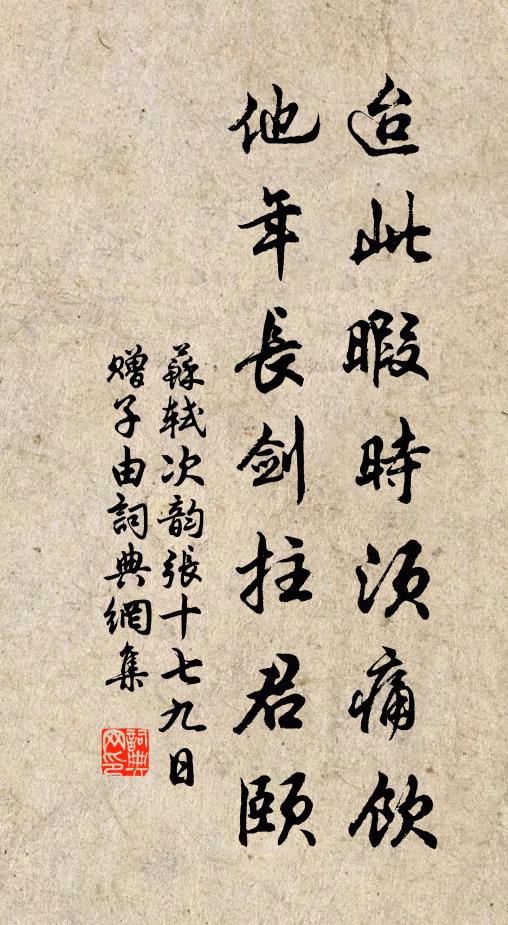 迨此暇時須痛飲
他年長劍拄君頤
蘇軾次韵張十七九日
贈子由詞典網集
詞典
网印